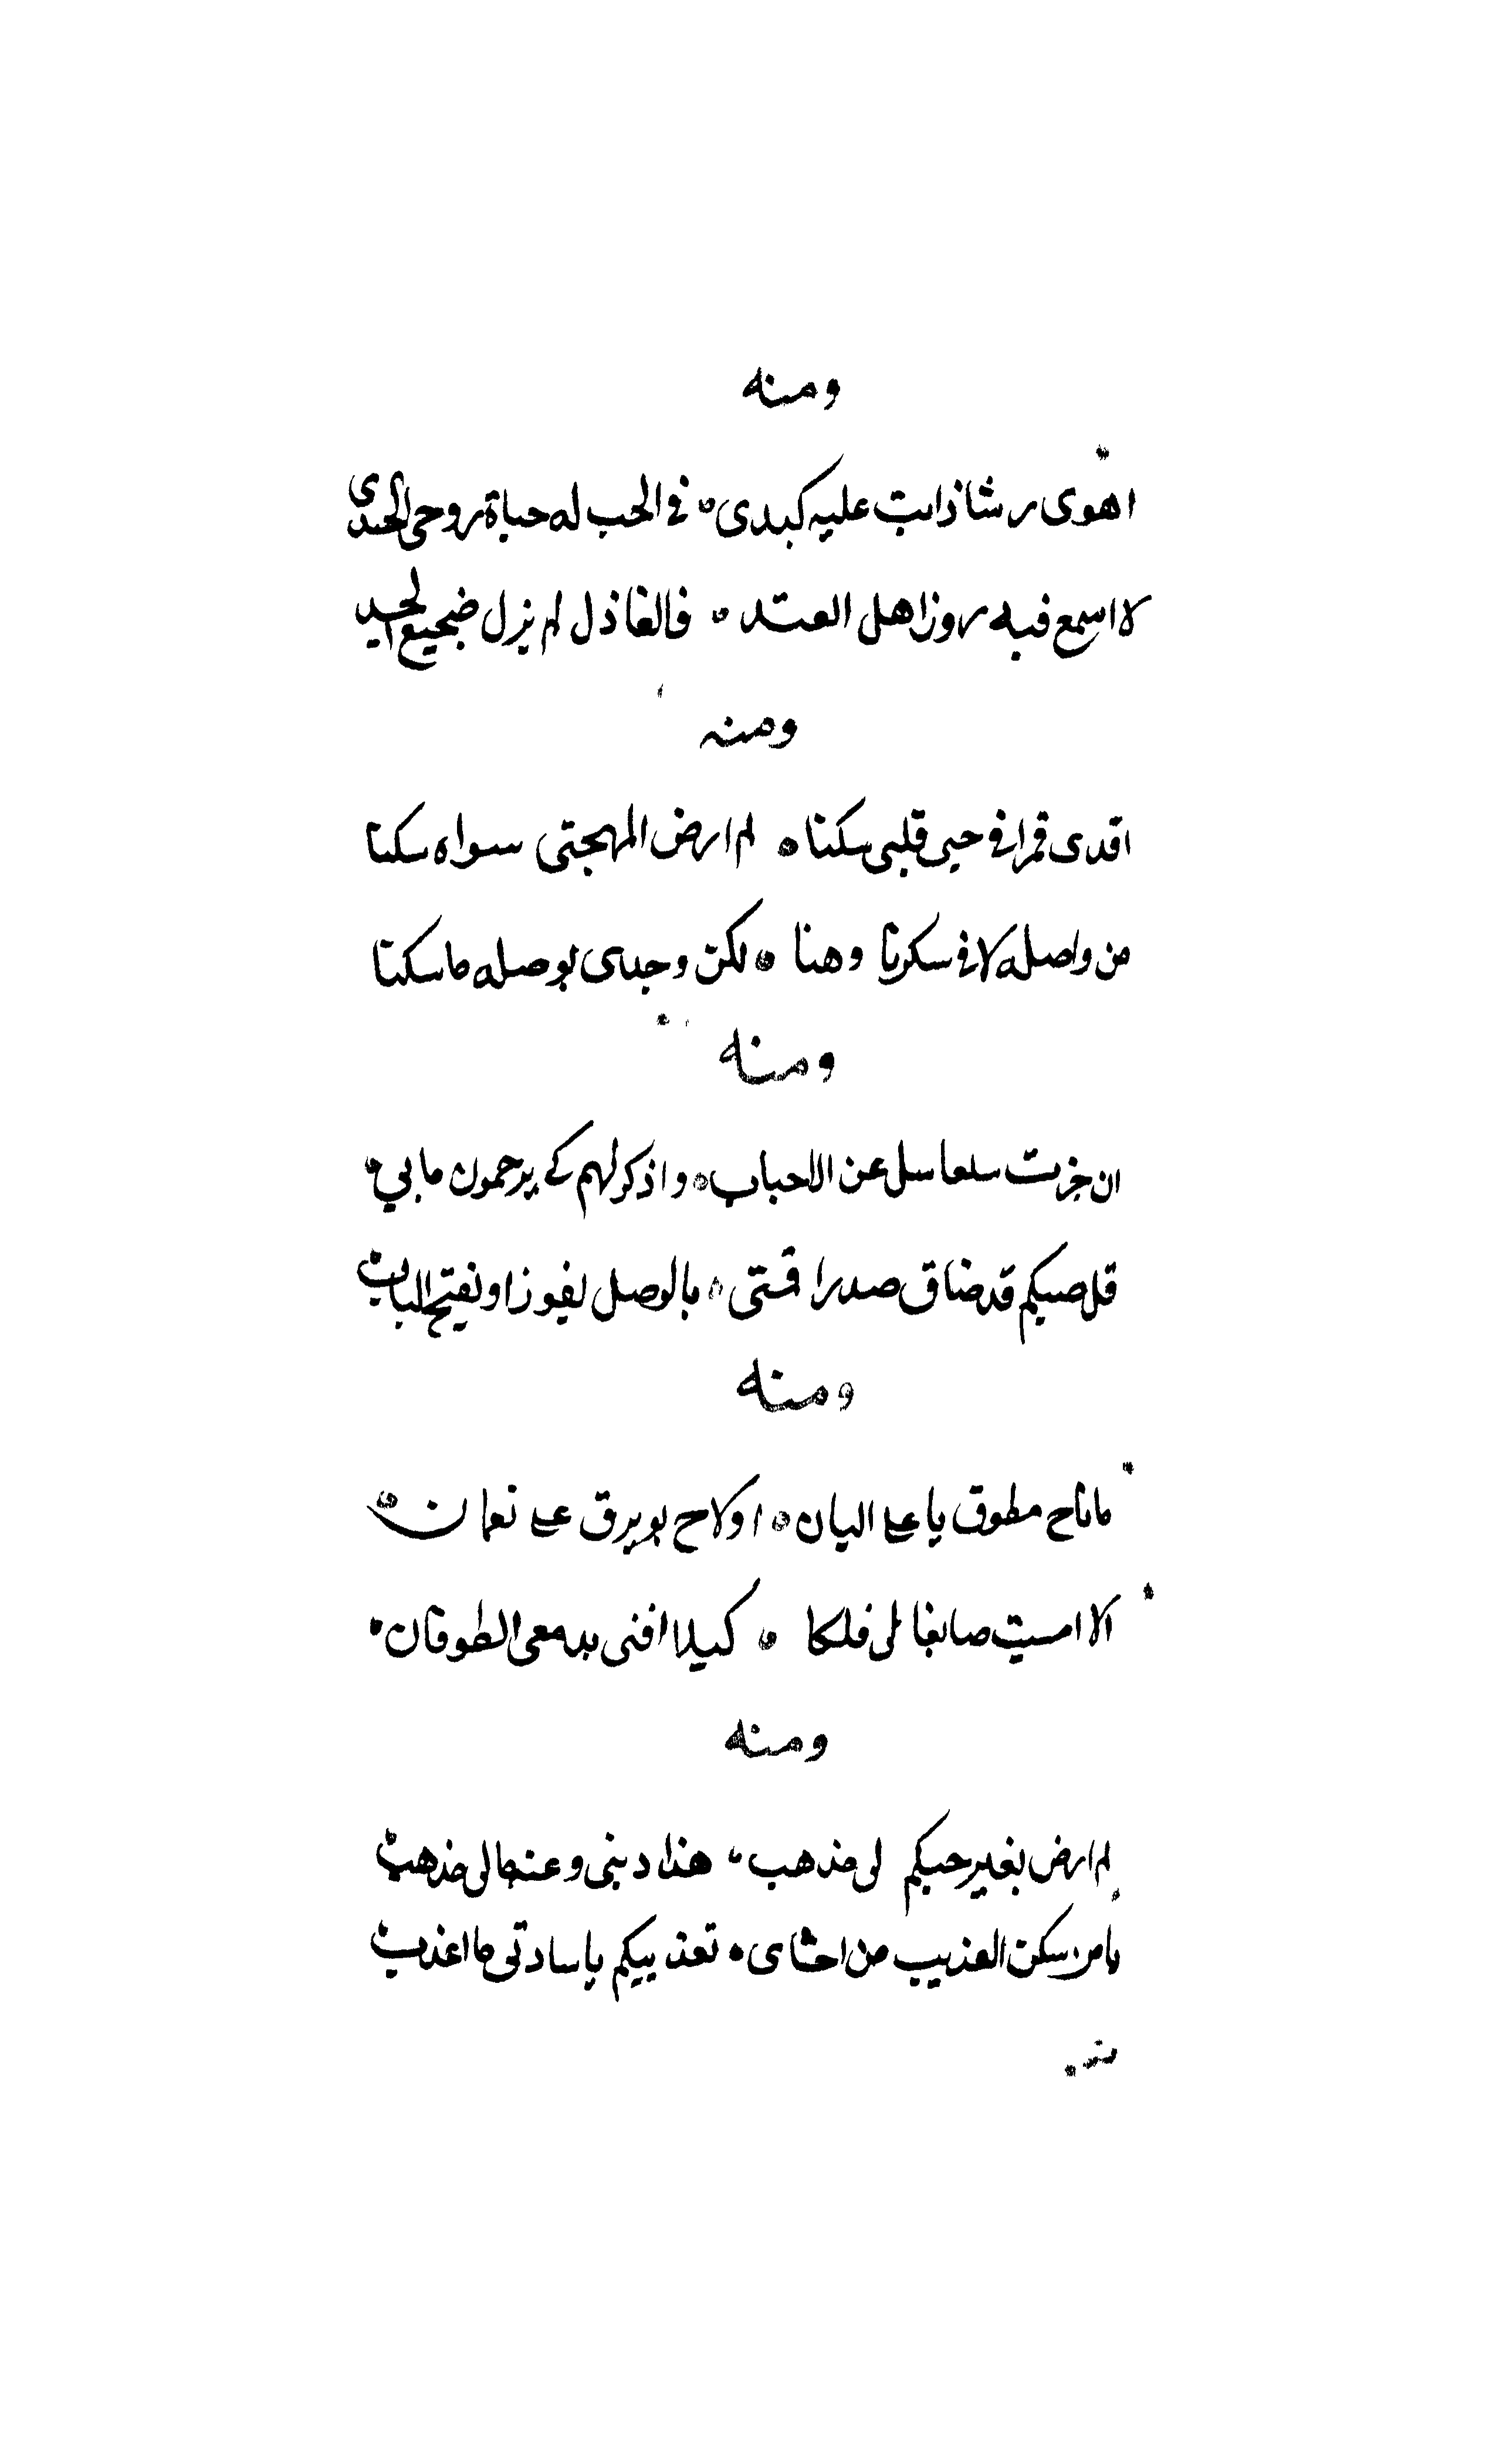 ومنه
اهوى رشا ذابت عليه كبدى في الحب له حياة روحى
لا اسمع فيه زور اهل العند فالعاذل لم يزل ضجيع الحسد
ومنه
افدى قمرا في حيى قلبى سكنا لم ارض المهجتى سواه سكنا
من واصله لا في سكرنا وهنا لكن وجدى بوصله ما سكنا
ومنه
ان جزت سلعا سل عن الاحباب واذكر لهم كي يرحمون ما بي
قل صبكم قد ضاق صدرا فمتى بالوصل يفوز او يفتح الباب
ومنه
ما ناح مطوق ياعلى البان اولاح بويرق على نعمان
الا امسيت صانعا لى فلكا كيلا افنى بدمعى الطوفان
ومنه
لم ارض بغير حبكم لى مذهب هذا دينى وعنه مالى مذهب
يا من سكن العذيب من احشاى تعذيبكم يا سادتى ما اعذب